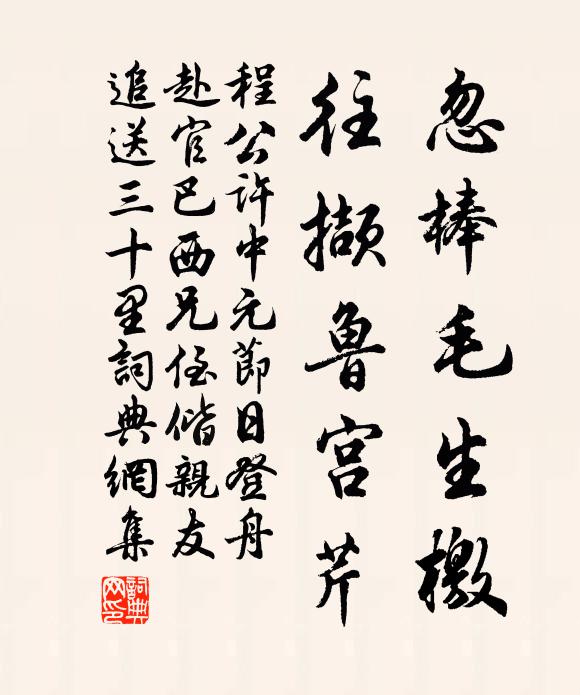 忽棒毛生檄
往擷魯宮芹
程公許中元節日登舟
赴官巴西兄侄偕親友
追送三十里詞典網集
詞典網印